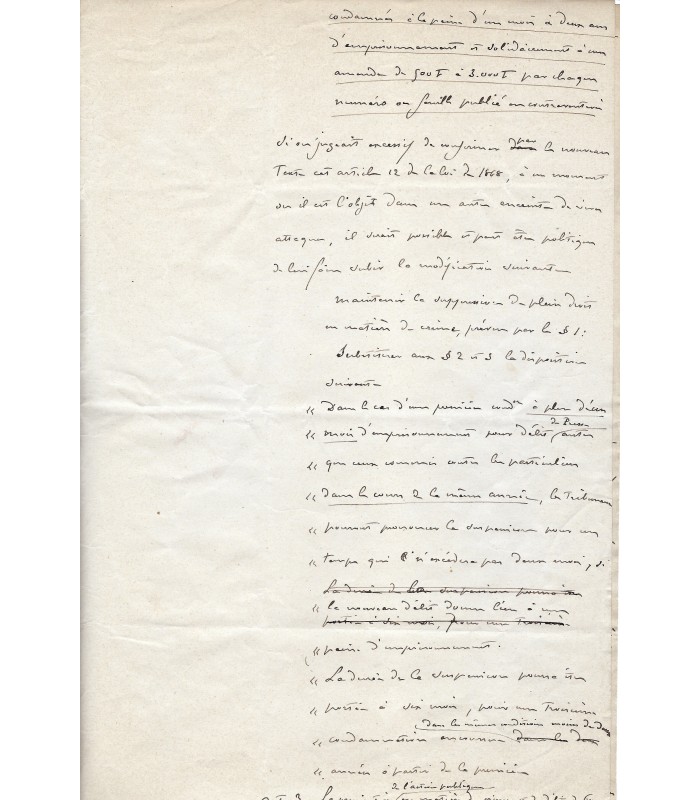 condamnés à la peine d'un mois à deux ans
d'emprisonnement et solidairement à une
amende de 500 F à 3.000 F par chaque
numéro ou feuille publié en contravention
Si on jugeait excessif de confirmer dans par le nouveau
Texte cet article 12 de la loi de 1868, à un moment
où il est l'objet dans une autre enceinte de vives
attaques, il serait possible et peut être politique
de lui faire subir la modification suivante
Maintenir la suppression de plein droit
en matière de crime, prévue par le § 1 :
Substituer aux § 2 et 3 la disposition
suivante
« Dans le cas d'une première condon à plus d'un
« mois d'emprisonnement pour délits de Presse autres
« que ceux commis contre les particuliers
« dans le cours de la même année, les Tribunaux
« pourront prononcer la suspension pour un
« temps qui n'excédera pas deux mois, si
La durée de la suspension pourra être
« le nouveau délit donne lieu à une
portée à six mois, pour une Troisième
« peine d'emprisonnement.
« La durée de la suspension pourra être
« portée à six mois, pour une Troisième
dans les mêmes conditions moins de deux
« condamnation encourue dans les deux
« années à partir de la première
de l'action publique